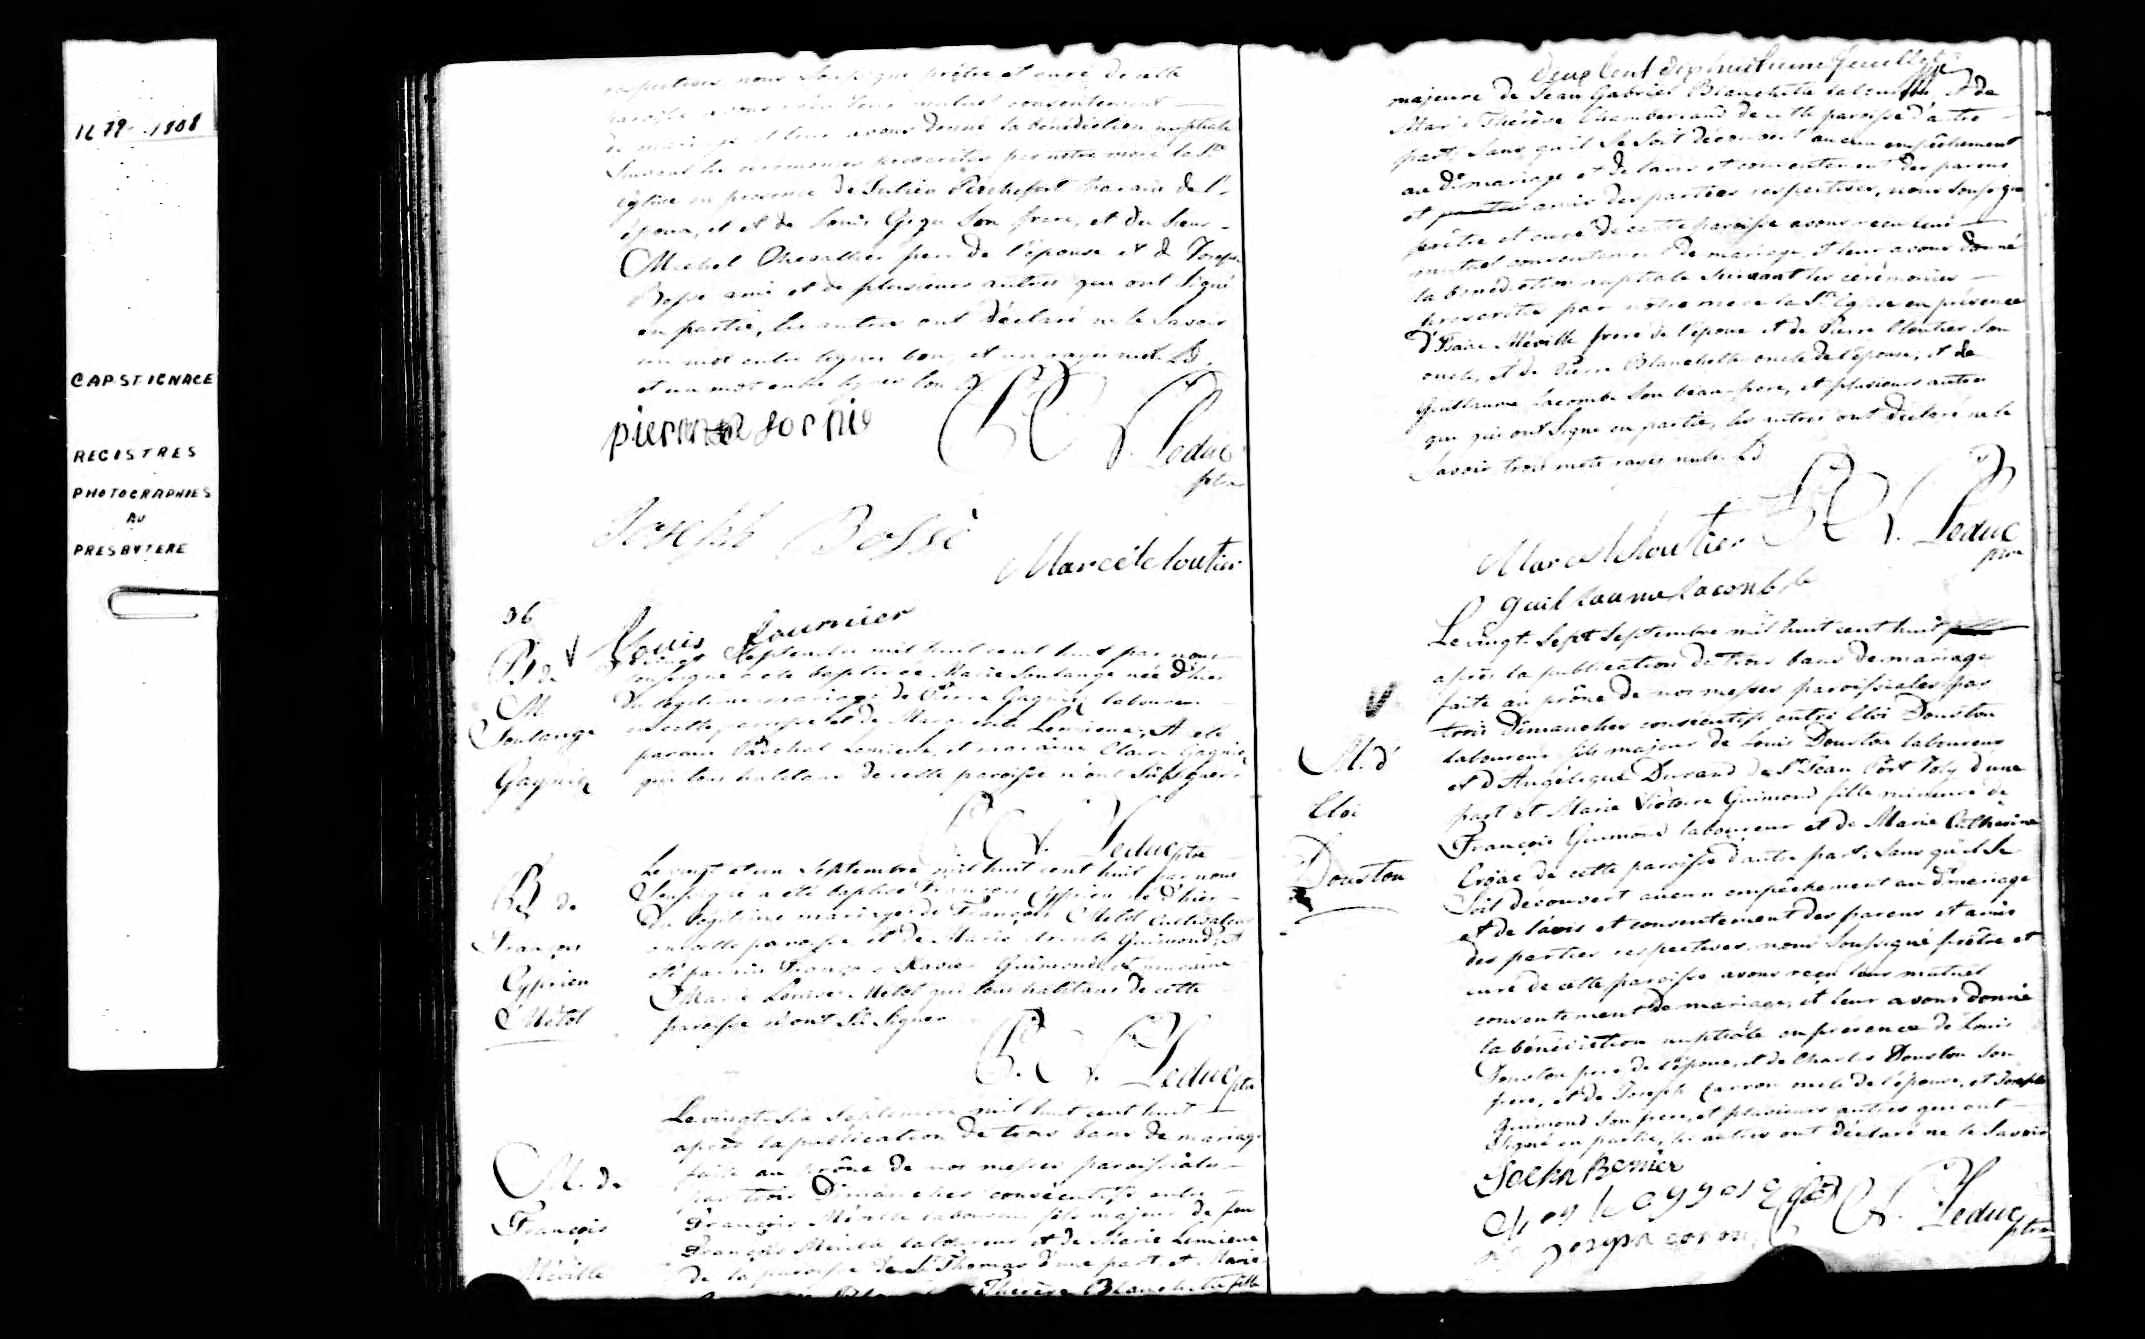 1679-1808
CAP ST. IGNACE
REGISTRES
PHOTOGRAPHIES
AU
PRESBYTERE
respectives nous soussigné prêtre et curé de cette
paroisse avons reçu leur mutuel consentement
de mariage et leur avons donné la bénédiction nuptiale
suivant les ceremonies prescrites par notre mere la Ste
église en présence de Julien
époux, et de Louis son frere, et du Sieur
Michel Chevallier pere de l'épouse et de Joseph
Bossé ami et de plusieurs autres qui ont signé
en partie, les autres ont déclaré ne le savoir
un mot entre lignes bon, et un rayé nul. LD.
et un mot entre lignes bon
Joseph Bossé
F. V. Leduc
ptre
Marcel cloutier
Louis fournier
36
B. de
M.
Soulange
Gagnier
Le vingt Septembre mil huit cent huit par nous
soussigné a été baptisée Marie Soulange née d'hier
du légitime mariage de Pierre Gagnier laboureur
en cette paroisse et de Marguerite Lemieux, A été
parain Paschal Lemieux, et maraine Claire Gagnier
qui tous habitans de cette paroisse n'ont su signer
Leduc ptre
B. de
François
Cyprien
Métot
Le vingt et un Septembre mil huit cent huit par nous
soussigné a été baptisé François Cyprien né d'hier
du légitime mariage de François Metot cultivateur
en cette paroisse et de Marie Guimond, A
été parain François Xavier Guimond, et maraine
Marie Louise Metot qui tous habitans de cette
paroisse n'ont su signer
Leduc ptre
M. de
François
Méville
Le vingt-six Septembre mil huit cent huit
après la publication de trois bans de mariage
faite au prône de nos messes paroissiales
par trois Dimanches consécutifs entre
François Méville laboureur fils majeur de feu
François Méville laboureur et de Marie Lemieux
de la paroisse de St Thomas d'une part et Marie
Thérèse Blanchette fille
Deux Cent dixhuitieme feuillet
majeure de Jean Gabriel Blanchette laboureur, et de
Marie Thérèse Chamberland de cette paroisse d'autre
part, sans qu'il se soit découvert aucun empêchement
au dt mariage et de l'avis et consentement des parens
et amis des parties respectives, nous soussigné
prêtre et curé de cette paroisse avons reçu leur
mutuel consentement de mariage, et leur avons donné
la bénédiction nuptiale suivant les cérémonies
prescrites par notre mere la Ste église en présence
d'Isaac Méville frere de l'époux et de Pierre Cloutier son
oncle, et de Pierre Blanchette oncle de l'épouse, et de
Guillaume Lacombe son beau-frere, et plusieurs autres
qui ont signé en partie, les autres ont déclaré ne le
savoir trois mots rayés nuls. LD
Marcel Cloutier
Leduc
ptre
guillaume lacombe
M. d'
Eloi
Douston
Le vingt-sept Septembre mil huit cent huit
après la publication de trois bans de mariage
faite au prône de nos messes paroissiales par
trois Dimanches consécutifs entre Eloi Douston
laboureur fils majeur de Louis Douston laboureur
et d'Angélique Durand de St Jean Port Joly d'une
part et Marie Victoire Guimond fille mineure de
François Guimond laboureur et de Marie Catherine
de cette paroisse d'autre part. sans qu'il se
soit découvert aucun empêchement au dt mariage
et de l'avis et consentement des parens et amis
des parties respectives, nous soussigné prêtre et
curé de cette paroisse avons reçu leur mutuel
consentement de mariage, et leur avons donné
la bénédiction nuptiale en présence de Louis
Douston pere de l'époux, et de Charles Douston son
frere, et de Joseph Carron oncle de l'épouse, et Joseph
Guimond son frere, et plusieurs autres qui ont
signé en partie, les autres ont déclaré ne le savoir
Bernier
Leduc
ptre